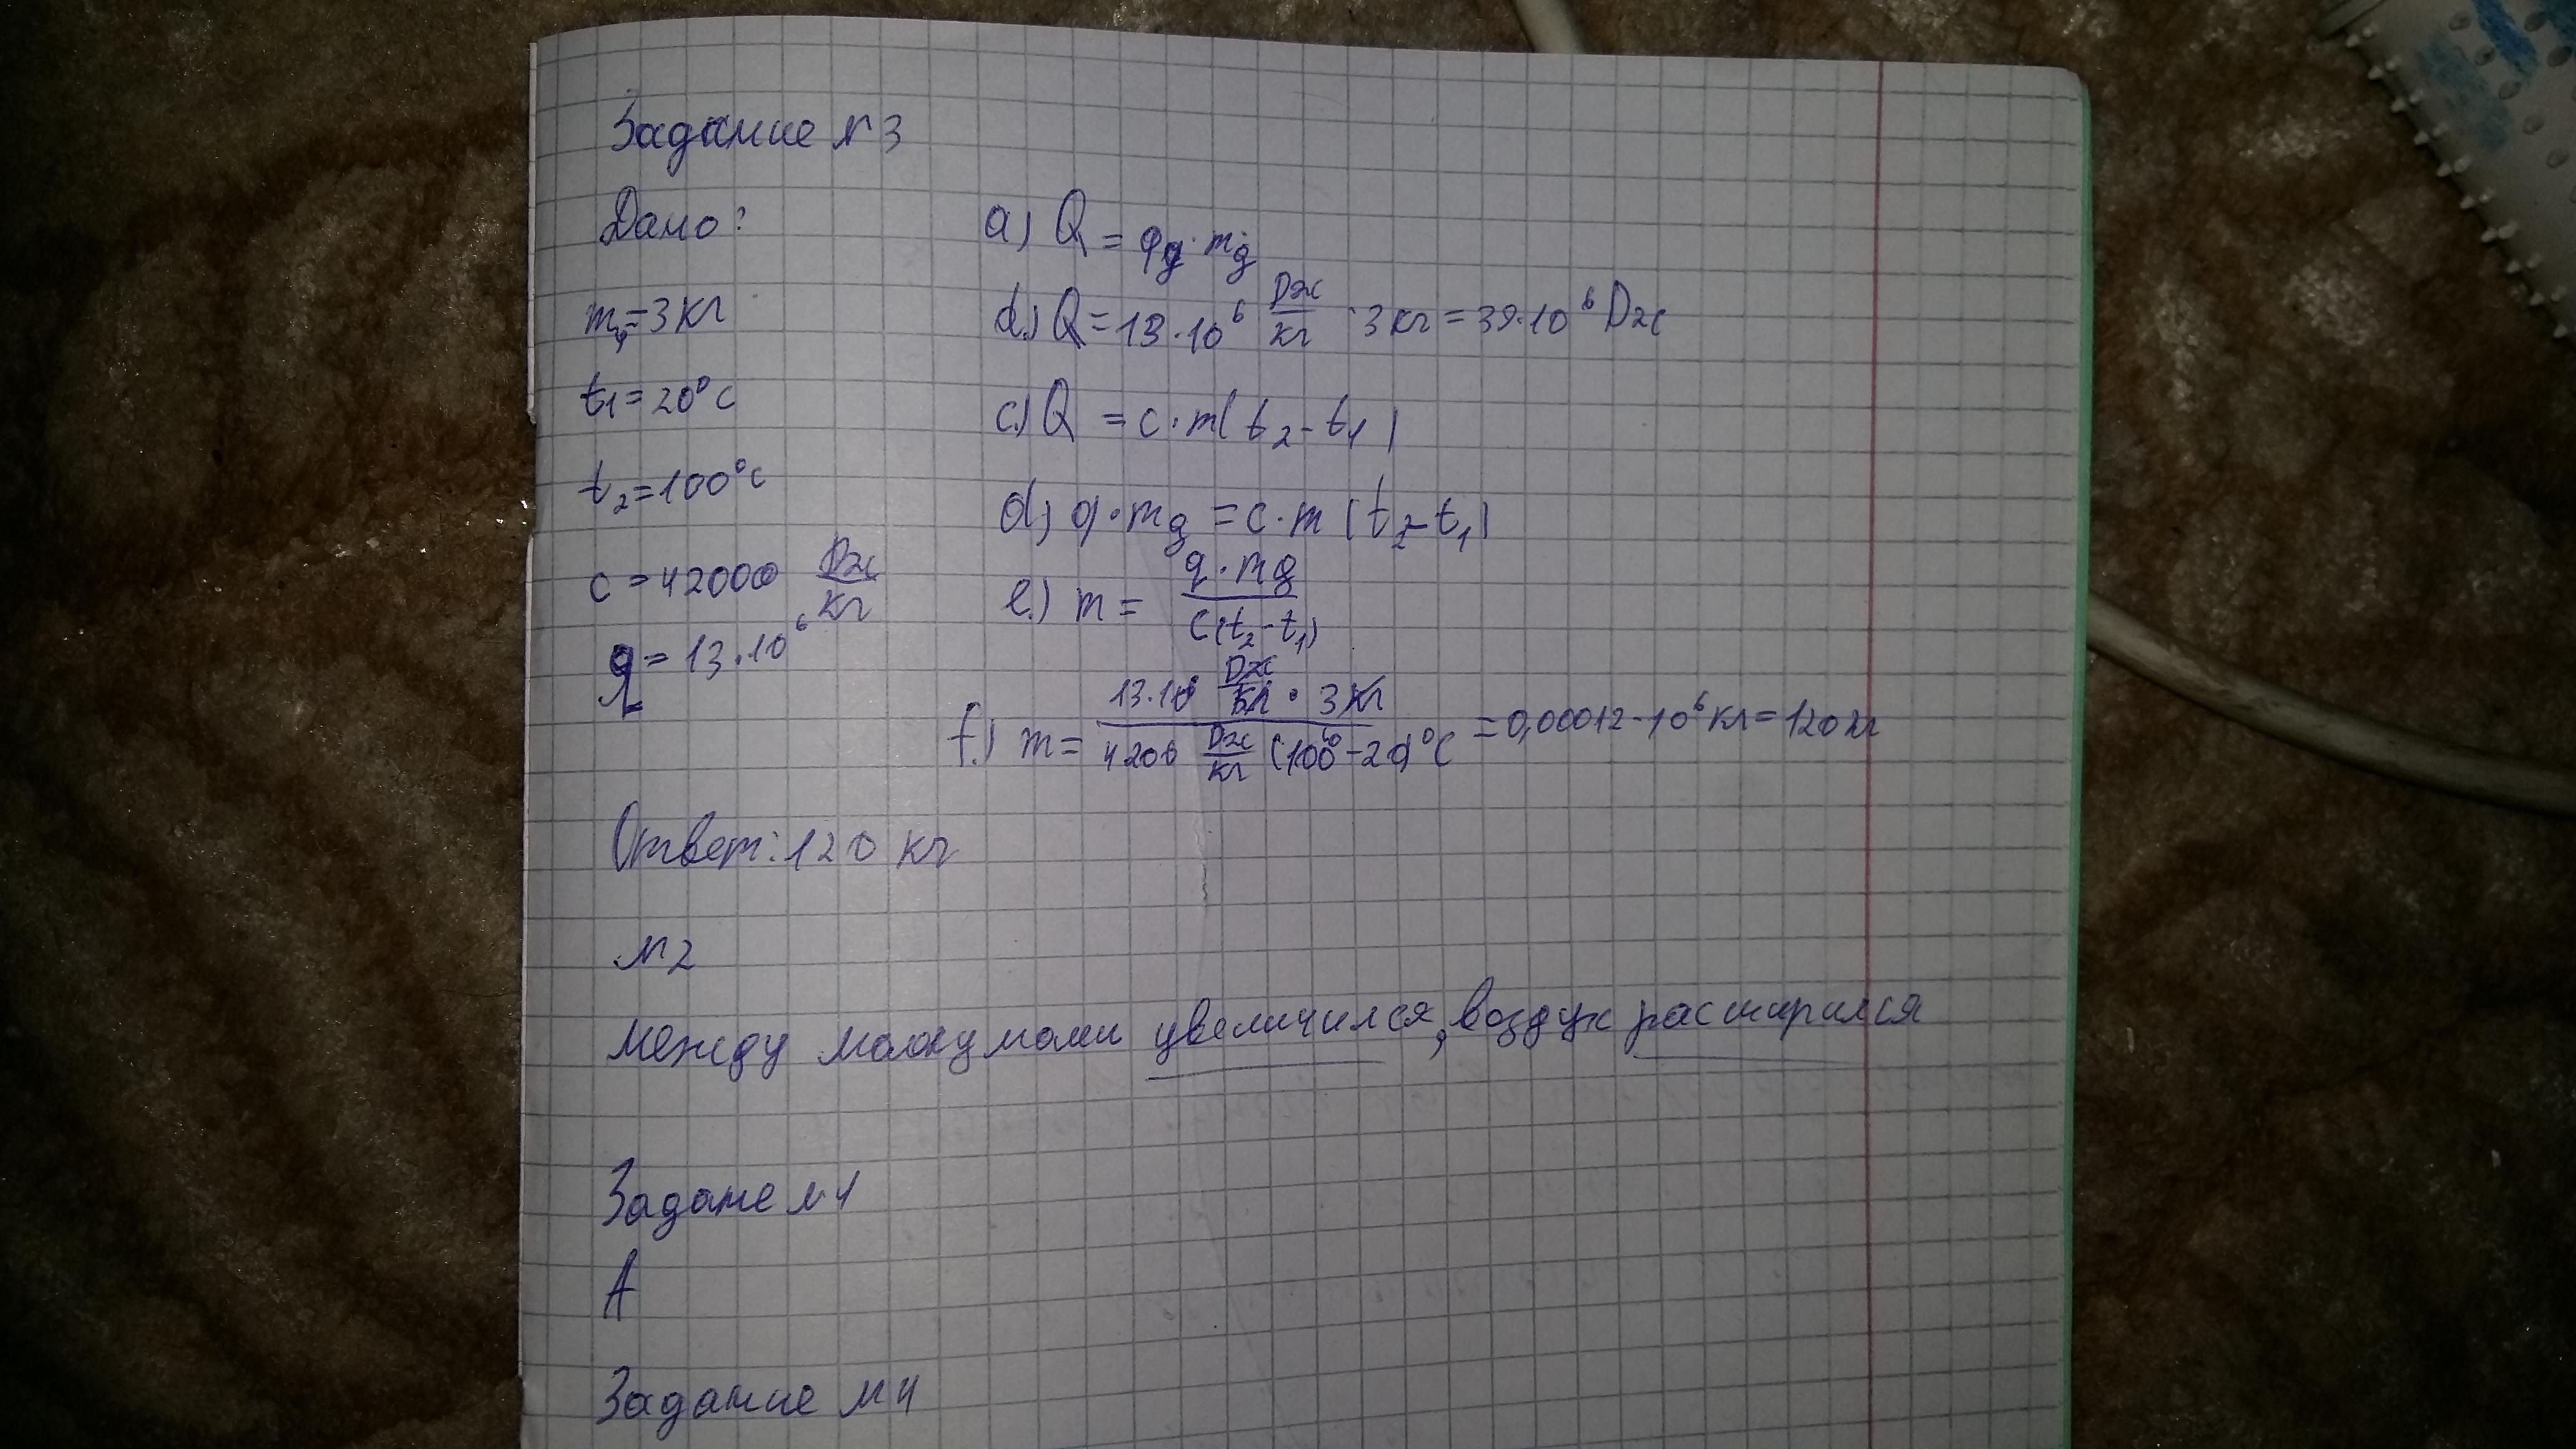 Задание №3
Дано:
m9=3кг
t1=20°c
t2=100°c
c=42000 Dж/кг
q=13·10^6
a) Q=qg·mg
d.) Q=13·10^6 Dж/кг·3кг=39·10^6 Dж
c.) Q=c·m(t2-t1)
d) q·mg=c·m(t2-t1)
e.) m= q·mg/c(t2-t1)
f.) m= 13·10^6 Dж/кг·3кг/4200 Dж/кг(100-20)°C =0,00012·10^6кг=120кг
Ответ:120 кг
№2
между увеличился, воздух расширился
Задане №1
А
Задание №4